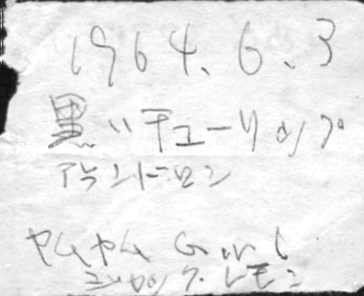 1964.6.3
黒いチューリップ
アラン・ドロン
ヤムヤム Girl